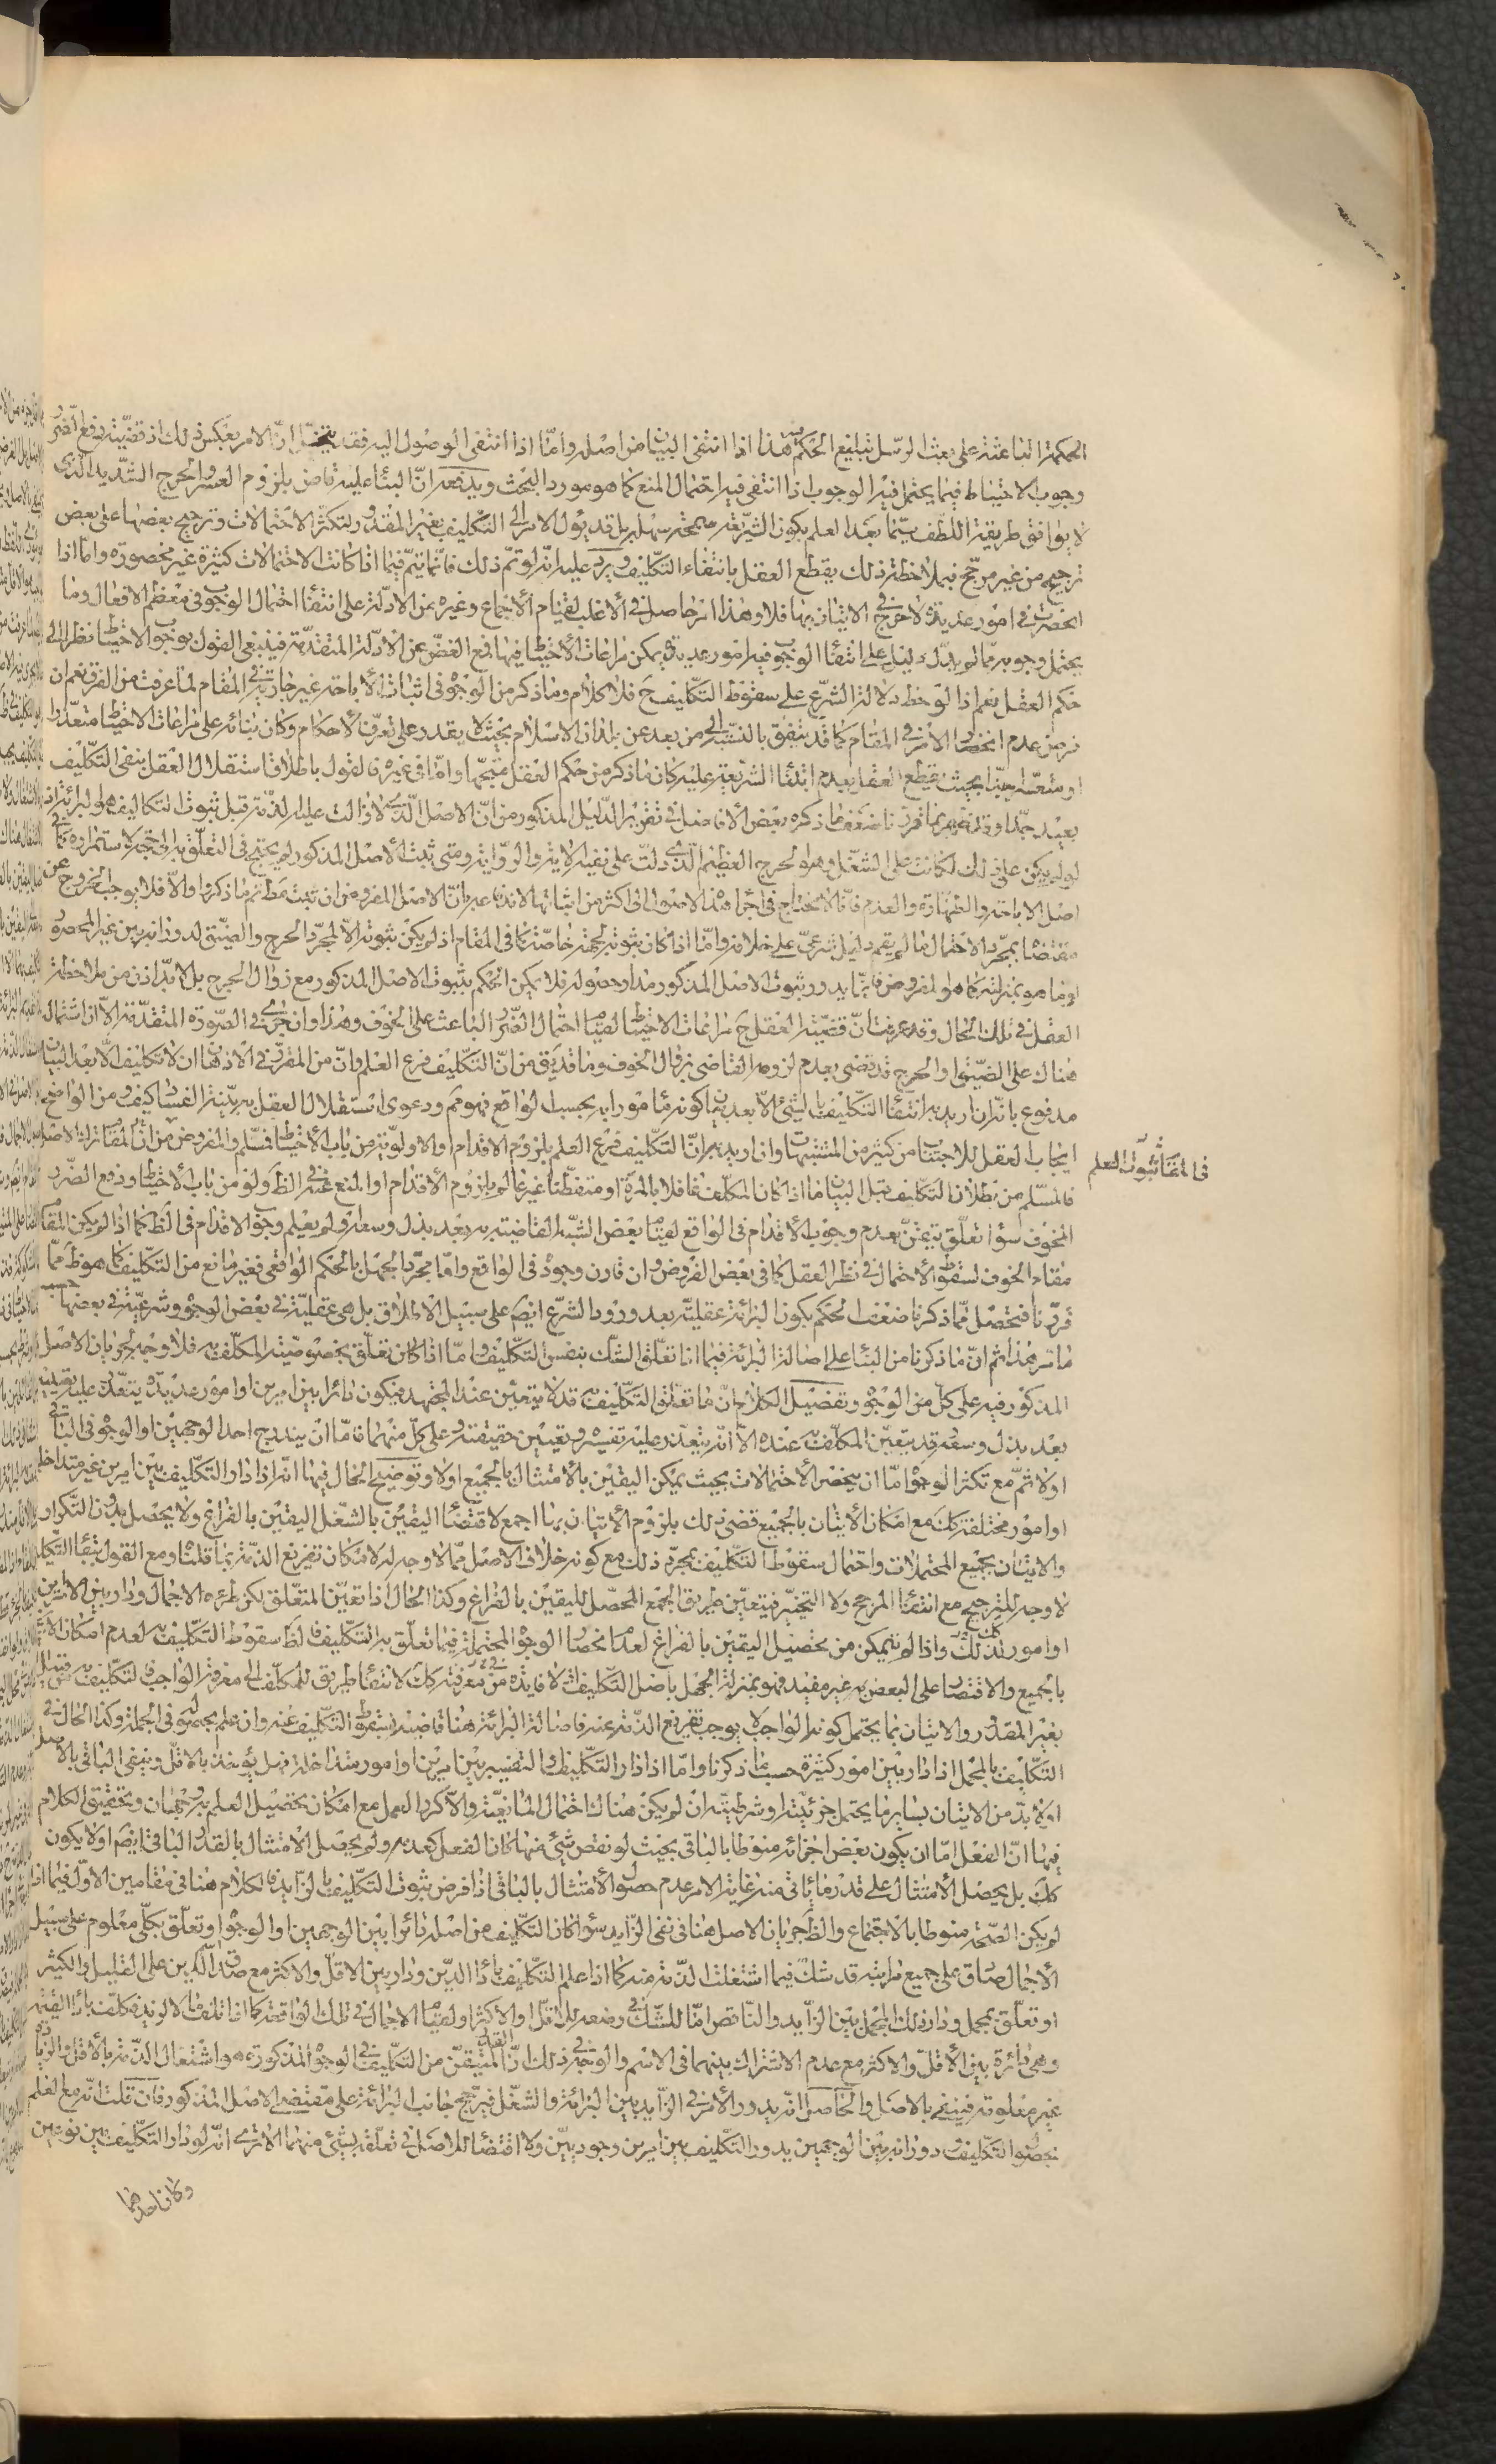 الحكمة الباعثة على بعث الرسل تبليغ الحكم هذا اذا انتفى البيان من اصله وامّا اذا انتفى الوصول اليه فقد يتخيّل انّ الامر بعكس ذلك اذ قضيّته دفع الضرر
وجوب الاحتياط فيما يحتمل فيه الوجوب اذا انتفى فيه احتمال المنع كما هو مورد البحث ويدفعه انّ البناء عليه قاض بلزوم العسر والحرج الشّديد الذى
لا يوافق طريقة اللّطف سيّما بعد العلم بكون الشّريعة سمحة سهلة بل قد يؤل الامر الى التّكليف بغير المقدور لتكثّر الاحتمالات وترجيح بعضها على بعض
ترجيح من غير مرجّح فبملاحظة ذلك يقطع العقل بانتفاء التّكليف ويرد عليه انّه لو تمّ ذلك فانّما يتمّ فيما اذا كانت الاحتمالات كثيرة غير محصورة وامّا اذا
انحصرت فى امور عديدة لا حرج فى الاتيان بها فلا وهذا امر حاصل فى الأغلب لقيام الاجماع وغيره من الادلّة على انتفاء احتمال الوجوب فى معظم الافعال وما
يحتمل وجوبه ممّا لم يدلّ دليل على انتفاء الوجوب فيه امور عديدة يمكن مراعات الأحتياط فيها فمع الغضّ عن الادلّة المتقدّمة فينبغى القول بوجوب الاحتياط نظرا الى
حكم العقل نعم اذا لوحظ دلالة الشّرع على سقوط التّكليف ح فلا كلام وما ذكر من الوجوه فى اثبات الأباحة غير جارية فى المقام لما عرفت من الفرق نعم ان
فرض عدم انحصار الأمر فى المقام كما قد يتّفق بالنّسبة الى من بعد عن بلدان الاسلام بحيث لا يقدر على تعرّف الأحكام وكان بنائه على مراعات الاحتياط متعذّرا
او متعسّرا جدّا بحيث يقطع العقل بعدم ابتناء الشّريعة عليه كان ما ذكر من حكم العقل متّجها وامّا فى غيره فالقول باطلاق استقلال العقل بنفى التّكليف
بعيد جدّا وقد ظهر بما قرّرنا ضعف ما ذكره بعض الأفاضل فى تقرير الدّليل المذكور من انّ الاصل الّذى لا زالت عليه الذّمّة قبل ثبوت التكاليف هو البرائة اذ
لو لم يكن على ذلك لكانت على الشغل وهو الحرج العظيم الّذى دلّت على نفيه الاية والرّواية ومتى ثبت الأصل المذكور لم يحتج فى التعلّق به الى حجّة لاستمراره كما فى
اصل الاباحة والطّهارة والعدم فانّا لا نحتاج فى اجراء هذه الاصول الى اكثر من اثباتها لانّه عبر بانّ الاصل المفروض ان ثبت عمّ ما ذكر والّا فلا يوجب الخروج عن
مقتضاه بمجرّد الاحتمال ما لم يقم دليل شرعىّ على خلافه وامّا اذا كان ثبوته لجهة خاصّة كما فى المقام اذ لم يكن ثبوته الّا لمجرّد الحرج والضّيق لدورانه بين غير المحصور
او ما هو بمنزلته كما هو المفروض فانّما يدور ثبوت الاصل المذكور مدار حصوله فلا يمكن الحكم بثبوت الاصل المذكور مع زوال الحرج بل لا بدّ اذن من ملاحظة
العقل فى تلك الحال وقد عرفت انّ قضيّة العقل ح مراعات الاحتياط لقيام احتمال الضّرر الباعث على الخوف وهذا وان جرى فى الصّورة المتقدّمة الّا انّ اشتمال
هناك على الضّيق والحرج قد قضى بعدم لزومه القاضى بزوال الخوف وما قد يق من انّ التّكليف فرع العلم وانّ من المقرّر فى الاذهان ان لا تكليف الّا بعد البيان
مدفوع بانّه ان اريد به انتفاء التّكليف بالشّئ الّا بعد بيان كونه مأمورا به بحسب الواقع فهو مم ودعوى استقلال العقل به بيّنة الفساد كيف ومن الواضح
ايجاب العقل للاجتناب من كثير من المشتبهات وان اريد به انّ التّكليف فرع العلم بلزوم الاقدام والاولوية من باب الأحتياط فمسلّم والمفروض من
فالمسلّم من بطلان التّكليف قبل البيان ما اذا كان المكلّف غافلا بالمرّة او متفطّنا غير عالم بلزوم الأقدام او المنع عنه فى الظّ ولو من باب الأحتياط ودفع الضّرر
المخوف سواء تعلّق تيقّن بعدم وجوب الأقدام فى الواقع لقيام بعض الشّبه القاضية به بعد بذل وسعه او لم يعلم وجوب الاقدام فى الظّ كما اذا لم يكن المقام
مقام الخوف لسقوط الأحتمال فى نظر العقل كما فى بعض الفروض وان قارن وجوده فى الواقع وامّا مجرّد الجهل بالحكم الواقعى فغير مانع من التّكليف كما هو ظ ممّا
قرّرنا فتحصّل ممّا ذكرنا ضعف الحكم بكون البرائة عقليّة بعد ورود الشّرع ايضا على سبيل الاطلاق بل هى عقليّة فى بعض الوجوه وشرعيّة فى بعضها حسب
ما مرّ هذا ثم انّ ما ذكرنا من البناء على اصالة البرائة فيما اذا تعلّق الشّك بنفس التّكليف وامّا اذا كان تعلّق بخصوصيّة المكلّف به فلا وجه لجريان الاصل
المذكور فيه على كلّ من الوجوه وتفصيل الكلام انّ ما تعلّق التّكليف به قد لا يتعيّن عند المجتهد فيكون دائرا بين امرين او امور عديدة يتعذّر عليه تعيينه
بعد بذل وسعه وقد يتعيّن المكلّف به عنده الّا انّه يتعذّر عليه تفسيره وتعيين حقيقته وعلى كلّ منهما فامّا ان يندرج احد الوجهين او الوجوه فى الباقى
اولا ثمّ مع تكثّر الوجوه امّا ان ينحصر الأحتمالات بحيث يمكن اليقين بالأمتثال بالجميع اولا وتوضيح الحال فيها انّه اذا دار التّكليف بين امرين غير متداخلين
او امور مختلفة كك مع امكان الأتيان بالجميع قضى ذلك بلزوم الأتيان بها اجمع لاقتضاء اليقين بالشّغل اليقين بالفراغ ولا يحصل بدون التّكرار
والاتيان بجميع المحتملات واحتمال سقوط التّكليف بمجرّد ذلك مع كونه خلاف الاصل ممّا لا وجه له لامكان تفريغ الذّمّة بما قلناه ومع القول ببقاء التّكليف
لا وجه للترجيح مع انتفاء المرجّح ولا التخيير فيتعيّن طريق الجمع المحصّل لليقين بالفراغ وكذا الحال اذا تعيّن المتعلّق لكن طرئه الاجمال ودار بين الامرين
او امور كك واذا لم يتمكن من تحصيل اليقين بالفراغ لعدم انحصار الوجوه المحتملة فيما تعلّق به التّكليف فالظّ سقوط التّكليف به لعدم امكان الاتيان
بالجميع والاقتصار على البعض به غير مفيد فهو بمنزلة الجهل باصل التّكليف لا فايدة من معرفته كك لانتفاء طريق للمكلّف الى معرفة الواجب فالتّكليف به من قبيل
بغير المقدور والاتيان بما يحتمل كونه الواجب لا يوجب تفريغ الذّمّة عنه فاصالة البرائة هنا قاضية بسقوط التّكليف عنه وان علم بحصوله فى الجملة وكذا الحال فى
التّكليف بالمجمل اذا دار بين امور كثيرة حسب ما ذكرنا وامّا اذا دار التّكليف او التفسير بين امرين او امور متداخلة فهل يؤخذ بالاقلّ وينفى الباقى بالاصل
اولا بدّ من الاتيان بساير ما يحتمل جزئيّته او شرطيّته ان لم يكن هناك احتمال المانعيّة والّا كرّر العمل مع امكان تحصيل العلم به وجهان وتحقيق الكلام
فيها انّ الفعل امّا ان يكون بعض اجزائه منوطا بالباقى بحيث لو نقص شئ منها كان الفعل كعدمه ولم يحصل الامتثال بالقدر الباقى ايضا اولا يكون
كك بل يحصل الأمتثال على قدر ما ياتى منه غاية الامر عدم حصول الأمتثال بالباقى اذا فرض ثبوت التّكليف بالزّايد فالكلام هنا فى مقامين الاوّل فيما اذا
لم يكن الصّحّة منوطا بالاجتماع والظّ جريان الاصل هنا فى نفى الزّايد سواء كان التّكليف من اصله دائرا بين الوجهين او الوجوه او تعلّق بكلّى معلوم على سبيل
الأجمال صادق على جميع مراتبه قد شكّ فيما اشتغلت الذّمّة منه كما اذا علم التّكليف باداء الدّين ودار بين الاقلّ والاكثر مع صدق الدّين على القليل والكثير
او تعلّق بمجمل ودار ذلك المجمل بين الزّايد والنّاقص امّا للشّكّ فى وضعه للاقلّ او الأكثر او لقيام الاجمال فى تلك الواقعة كما اذا تلف مالا لزيد فكلّف باداء القيمة
وهى دائرة بين الأقلّ والاكثر مع عدم الاشتراك بينهما فى الاسم والوجه فى ذلك انّ القدر المتيقّن من التّكليف فى الوجوه المذكورة هو اشتغال الذّمّة بالأقلّ والزّيادة
غير معلومة فينفى بالاصل والحاصل انّه يدور الأمر فى الزّايد بين البرائة والشّغل فيرجّح جانب البرائة على مقتضى الاصل المذكور فان قلت انّه مع العلم
بحصول التّكليف ودورانه بين الوجهين يدور التّكليف بين امرين وجوديّين ولا اقتضاء للاصل فى تعلّقه بشئ منهما الا ترى انّه لو دار التّكليف بين نوعين
وكان احدهما
فى المقام ثبوت العلم